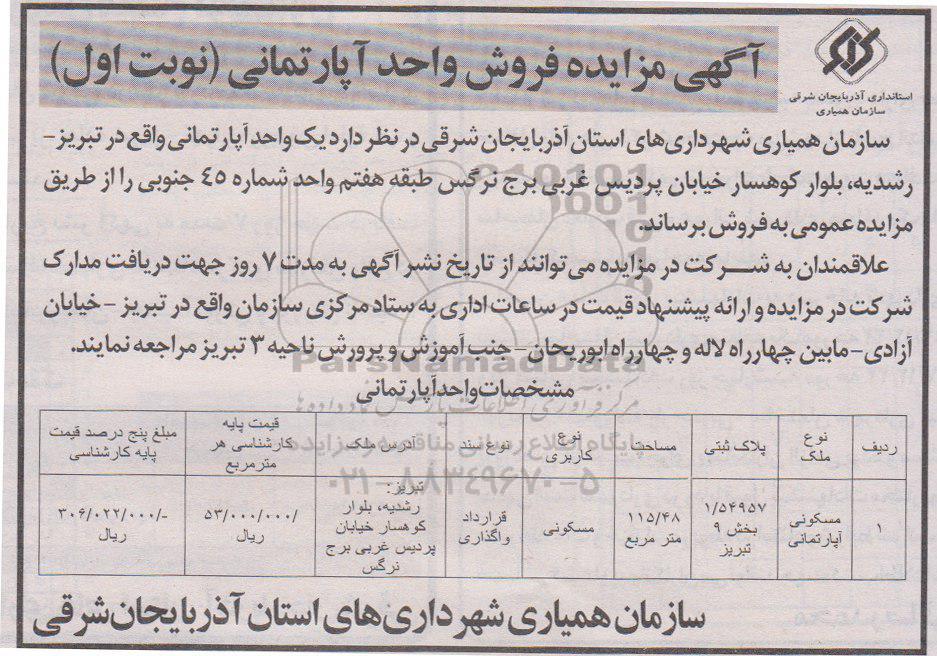 استانداری آذربایجان شرقی
سازمان همیاری
آگهی مزایده فروش واحد آپارتمانی (نوبت اول)
سازمان همیاری شهرداری‌های استان آذربایجان شرقی در نظر دارد یک واحد آپارتمانی واقع در تبریز-
رشدیه، بلوار کوهسار خیابان پردیس غربی برج نرگس طبقه هفتم واحد شماره ٤٥ جنوبی را از طریق
مزایده عمومی به فروش برساند.
علاقمندان به شرکت در مزایده می‌توانند از تاریخ نشر آگهی به مدت ۷ روز جهت دریافت مدارک
شرکت در مزایده و ارائه پیشنهاد قیمت در ساعات اداری به ستاد مرکزی سازمان واقع در تبریز - خیابان
آزادی- مابین چهارراه لاله و چهارراه ابوریحان - جنب آموزش و پرورش ناحیه ۳ تبریز مراجعه نمایند.
ParsNamadData
مشخصات واحد آپارتمانی
مرکز فرآوری اطلاعات پارس نماد داده‌ها
پایگاه اطلاع رسانی مناقصه و مزایده
۰۲۱-۸۸۳۴۹۶۷۰-۵
ردیف | نوع ملک | پلاک ثبتی | مساحت | نوع کاربری | نوع سند | آدرس ملک | قیمت پایه کارشناسی هر مترمربع | مبلغ پنج درصد قیمت پایه کارشناسی
۱ | مسکونی آپارتمانی | ۱/٥٤٩٥٧ بخش ۹ تبریز | ۱۱٥/٤۸ متر مربع | مسکونی | قرارداد واگذاری | تبریز: رشدیه، بلوار کوهسار خیابان پردیس غربی برج نرگس | ٥۳/۰۰۰/۰۰۰/ ریال | ۳۰٦/۰۲۲/۰۰۰/- ریال
سازمان همیاری شهرداری‌های استان آذربایجان شرقی